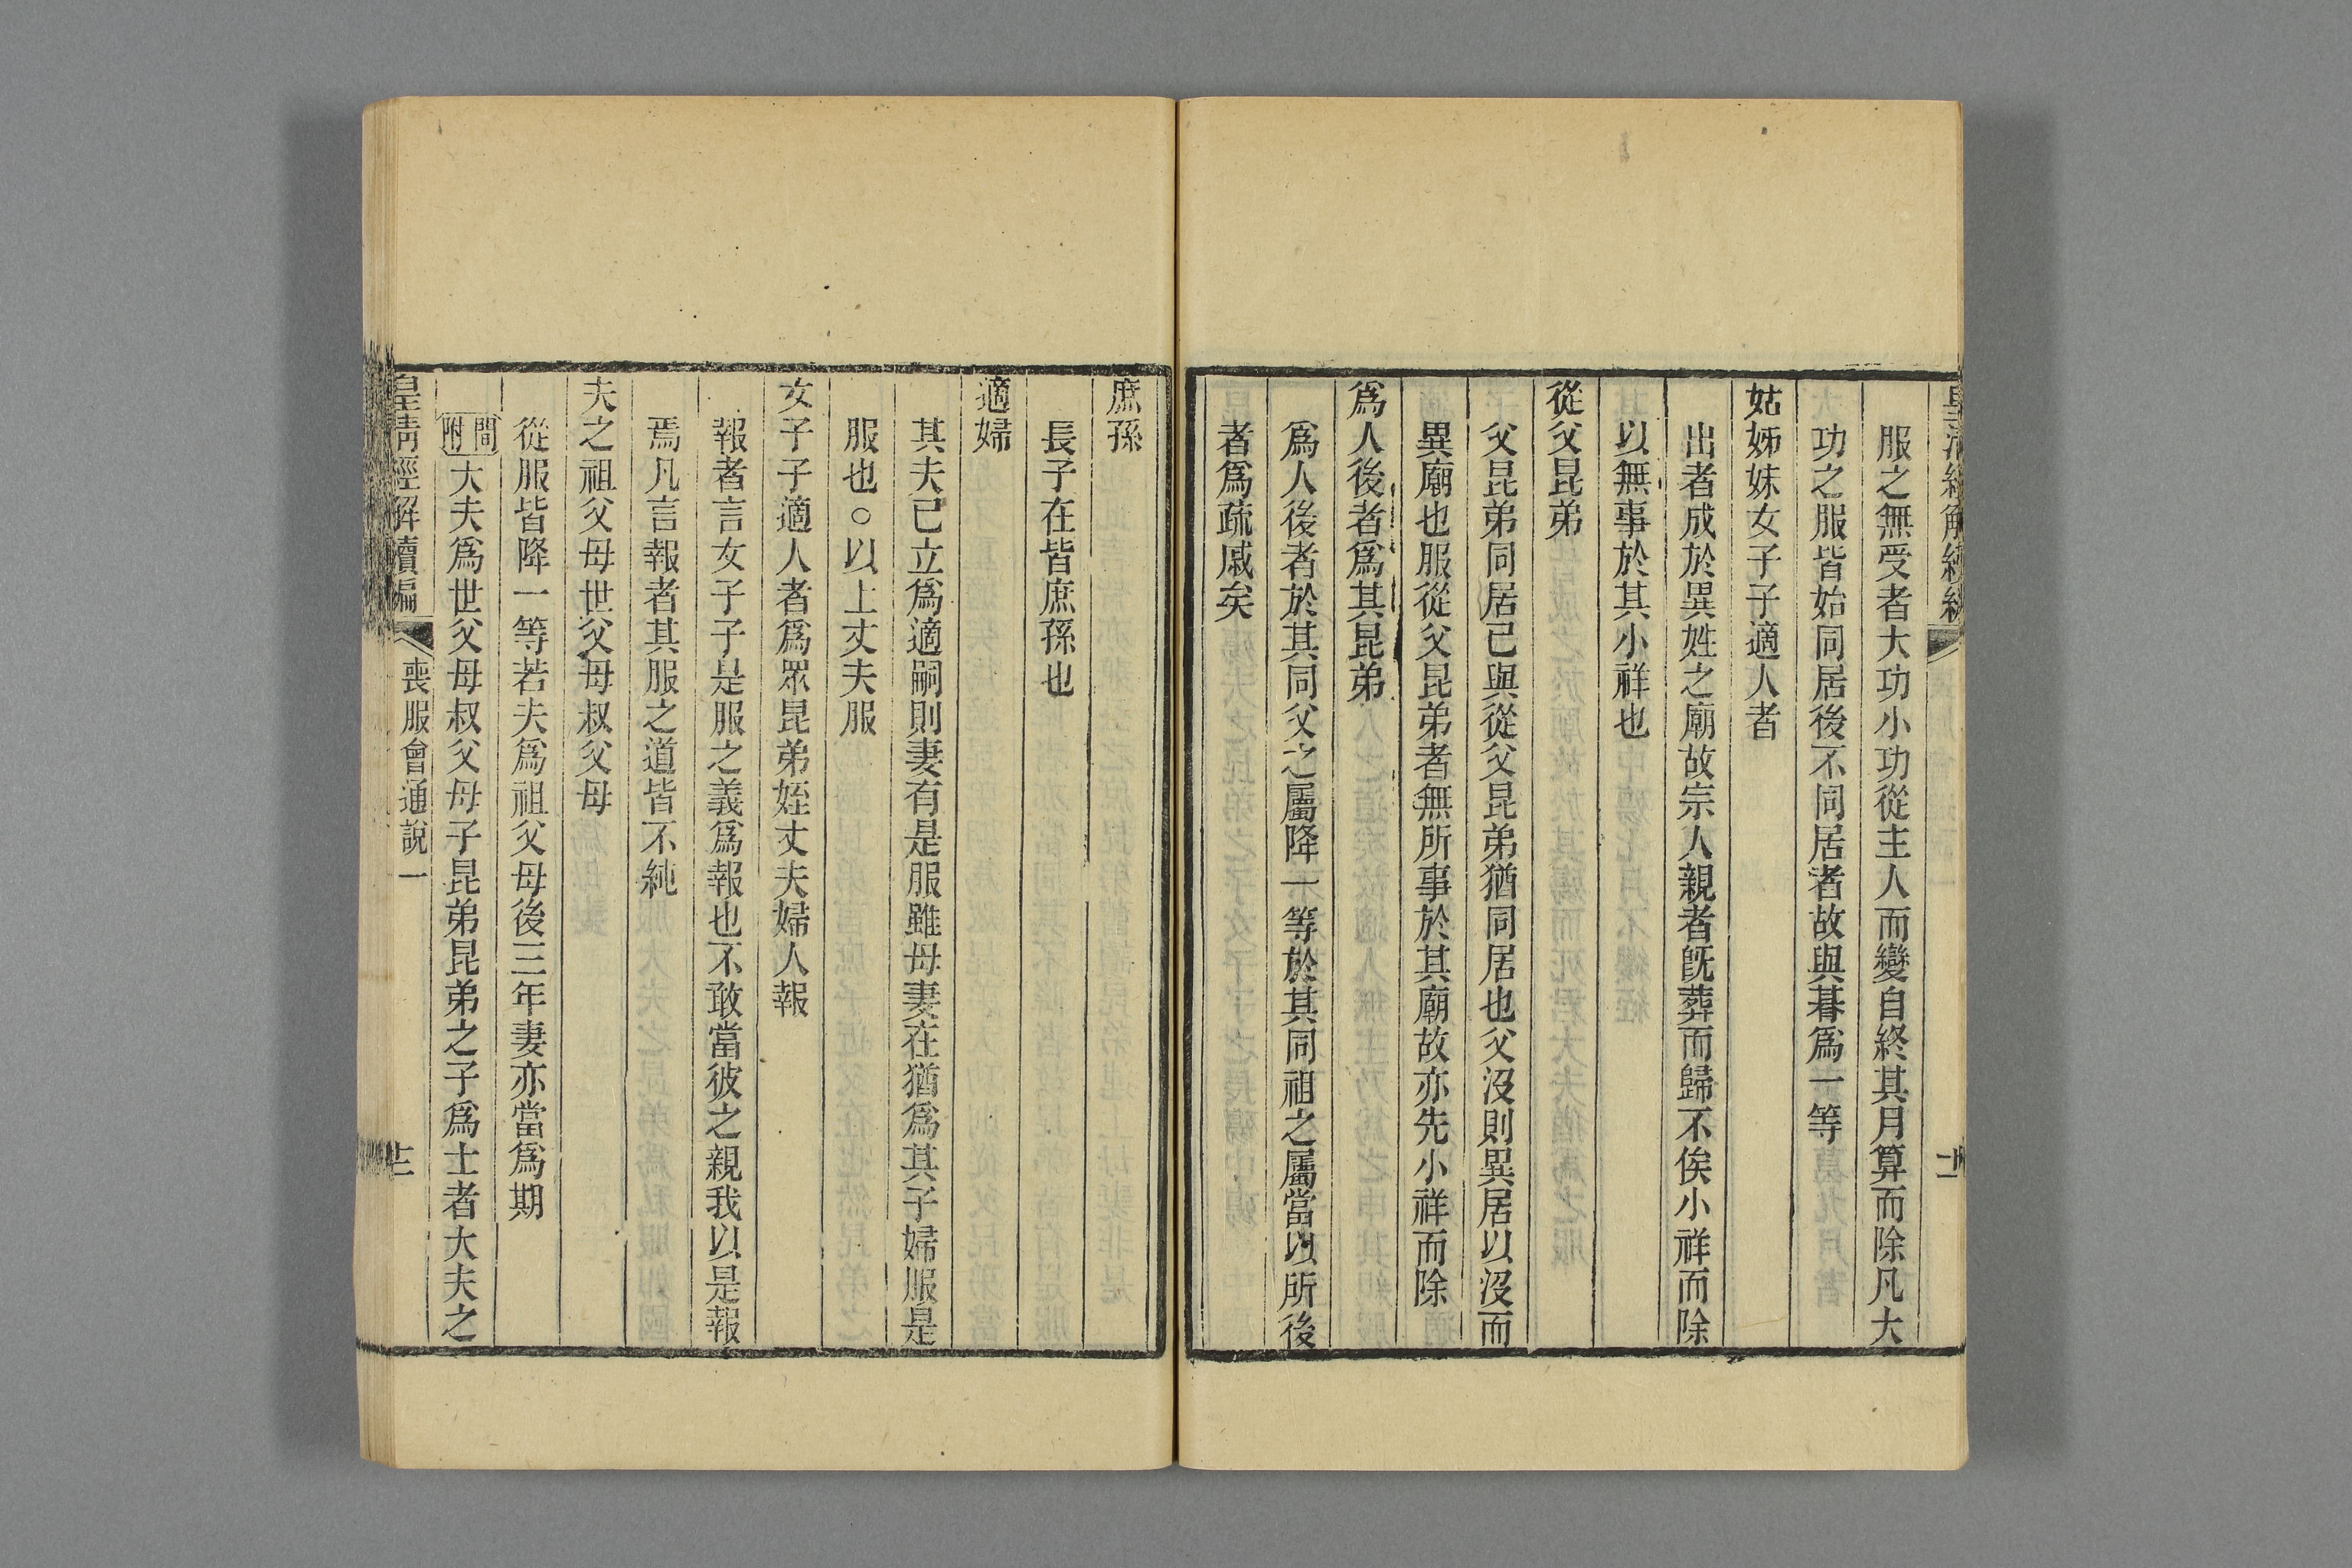 服之無受者大功小功從主人而變自終其月算而除凡大
功之服皆始同居後不同居者故與朞爲一等
姑姊妹女子子適人者
出者成於異姓之廟故宗人親者旣葬而歸不俟小祥而除
以無事於其小祥也
從父昆弟
父昆弟同居已與從父昆弟猶同居也父沒則異居以沒而
異廟也服從父昆弟者無所事於其廟故亦先小祥而除
爲人後者爲其昆弟
爲人後者於其同父之屬降一等於其同祖之屬當以所後
者爲疏戚矣
庶孫
長子在皆庶孫也
適婦
其夫已立爲適嗣則妻有是服雖母妻在猶爲其子婦服是
服也○以上丈夫服
女子子適人者爲眾昆弟姪丈夫婦人報
報者言女子子是服之義爲報也不敢當彼之親我以是報
焉凡言報者其服之道皆不純
夫之祖父母世父母叔父母
從服皆降一等若夫爲祖父母後三年妻亦當爲期
間附大夫爲世父母叔父母子昆弟昆弟之子爲士者大夫之
皇清經解續編 喪服會通說一